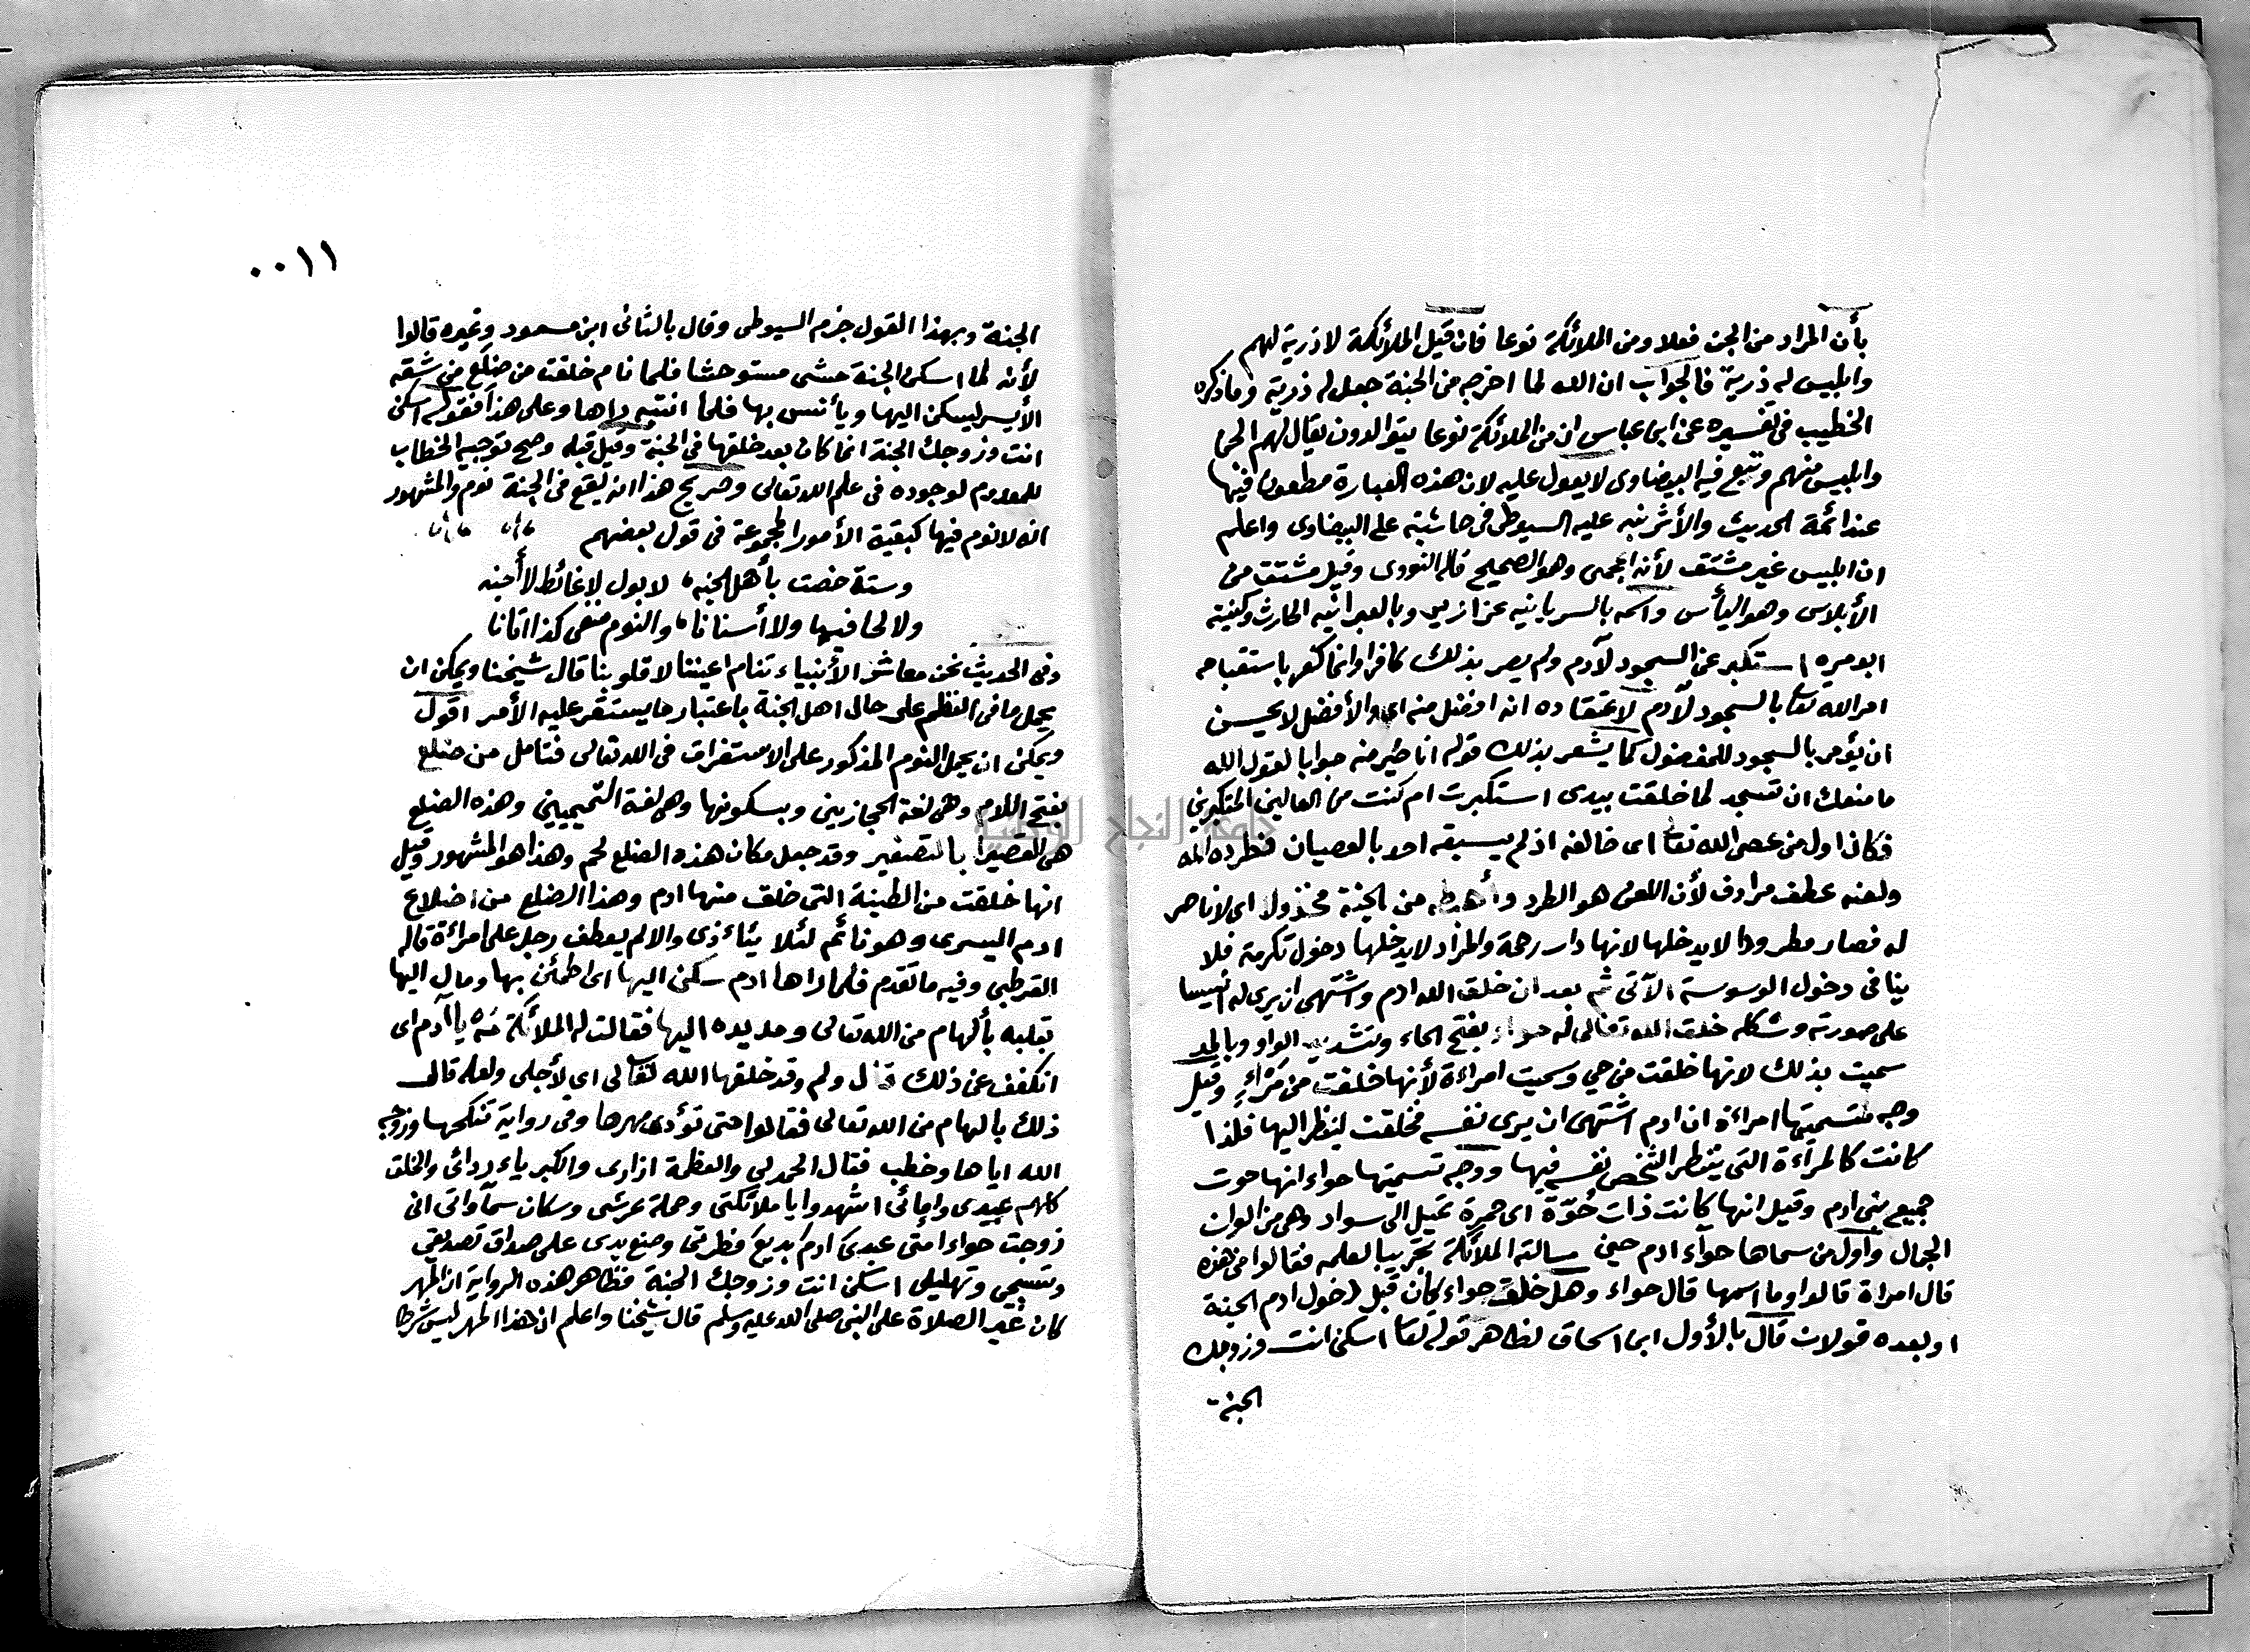 بأن المراد من الجن فعلا ومن الملائكة نوعا فان قيل الملائكة لا ذرية لهم
وابليس له ذرية فالجواب ان الله لما اخرجه من الجنة جعل له ذرية وما ذكره
الخطيب في تفسيره عن ابن عباس ان من الملائكة نوعا يتوالدون يقال لهم الجن
وابليس منهم وتبع فيه البيضاوى لا يعول عليه لان هذه العبارة مطعون فيها
عند ائمة الحديث والأثر نبه عليه السيوطى في حاشيته على البيضاوى واعلم
ان ابليس غير مشتق لأنه اعجمى وهو الصحيح قاله النووى وقيل مشتق من
الأبلاس وهو اليأس واسمه بالسريانيه عزازيل وبالعبرانيه الحارث وكنيته
ابو مره استكبر عن السجود لآدم ولم يصر بذلك كافرا وانما كفر باستقباحه
امر الله تعا بالسجود لآدم لاعتقاده انه افضل منه اى والأفضل لا يحسن
ان يؤمر بالسجود للمفضول كما يشعر بذلك قوله انا خير منه جوابا لقول الله
ما منعك ان تسجد لما خلقت بيدى استكبرت ام كنت من العالين المتكبرين
فكان اول من عصى الله تعا اى خالفه اذ لم يسبقه احد بالعصيان فطرده الله
ولعنه عطف مرادف لأن اللعن هو الطرد وأهبطه من الجنة مخذولا اى لا ناصر
له فصار مطرودا لا يدخلها لانها دار رحمة والمراد لا يدخلها دخول تكرمة فلا
ينافى دخول الوسوسة الآتى ثم بعد ان خلق الله ادم واشتهى ان يرى له انيسا
على صورته وشكله خلق الله تعالى له حواء بفتح الحاء وتشديد الواو وبالمد
سميت بذلك لانها خلقت من حي وسميت امراءة لأنها خلقت من مَرْاءٍ وقيل
وجه تسميتها امراءة ان ادم اشتهى ان يرى نفسه فخلقت لينظر اليها فلذا
كانت كالمرآءة التى ينظر الشخص نفسه فيها ووجه تسميتها حواء انها حوت
جميع بنى ادم وقيل انها كانت ذات حُوّة اى حمرة تميل الى سواد وهى من الوان
الجمال واول من سماها حوآء ادم حين سالته الملائكة تجريبا لعلمه فقالوا من هذه
قال امراة قالوا وما اسمها قال حواء وهل خلق حواء كان قبل دخول ادم الجنة
او بعده قولان قال بالأول ابن اسحاق لظاهر قوله تعا اسكن انت وزوجك
الجنة
٠٠١١
الجنة وبهذا القول جزم السيوطى وقال بالثانى ابن مسعود وغيره قالوا
لأنه لما اسكن الجنة مشى مستوحشا فلما نام خلقت من ضلع من شقه
الأيسر ليسكن اليها ويأنس بها فلما انتبه راها وعلى هذا فقوله اسكن
انت وزوجك الجنة انما كان بعد خلقها في الجنة وقيل قبله وصح توجيه الخطاب
للمعدوم لوجوده في علم الله تعالى وصريح هذا انه يقع في الجنة نوم والمشهور
انه لا نوم فيها كبقية الأمور المجموعة في قول بعضهم
وستة خصت بأهل الجنه لا بول لا غائط لا أجنه
ولا لحا فيها ولا أسنانا والنوم منفى كذا اتانا
وفى الحديث نحن معاشر الأنبياء تنام اعيننا لا قلوبنا قال شيخنا ويمكن ان
يحمل ما في النظم على حال اهل الجنة باعتبار ما يستقر عليه الأمر اقول
ويمكن ان يحمل النوم المذكور على الاستغراق في الله تعالى فتامل من ضلع
بفتح اللام وهى لغة الحجازيين وبسكونها وهى لغة التميميين وهذه الضلع
هى القصيرا بالتصغير وقد جعل مكان هذه الضلع لحم وهذا هو المشهور وقيل
انها خلقت من الطينة التى خلق منها ادم وهذا الضلع من اضلاع
ادم اليسرى وهو نائم لئلا يتاءذى والا لم يعطف رجل على امراءة قاله
القرطبي وفيه ما تقدم فلما راها ادم سكن اليها اى اطمئن بها ومال اليها
بقلبه بألهام من الله تعالى ومد يده اليها فقالت له الملائكة مَه يا آدم اى
انكفف عن ذلك قال ولم وقد خلقها الله تعالى اي لأجلى ولعله قال
ذلك بالهام من الله تعالى فقالوا حتى تؤدى مهرها وفى رواية تنكحها وزوجه
الله اياها وخطب فقال الحمد لي والعظمة ازارى والكبرياء ردائى والخلق
كلهم عبيدى وامائى اشهدوا يا ملائكتى وحملة عرشى وسكان سمآواتى انى
زوجت حواء امتى عبدى ادم بديع فطرتى وصنع يدى على صداق تصديقى
وتسبيحى وتهليلى اسكن انت وزوجك الجنة فظاهر هذه الرواية ان المهر
كان غير الصلاة على النبى صلى الله عليه وسلم قال شيخنا واعلم ان هذا المهر ليس شرطا
جامعة النجاح الوطنية